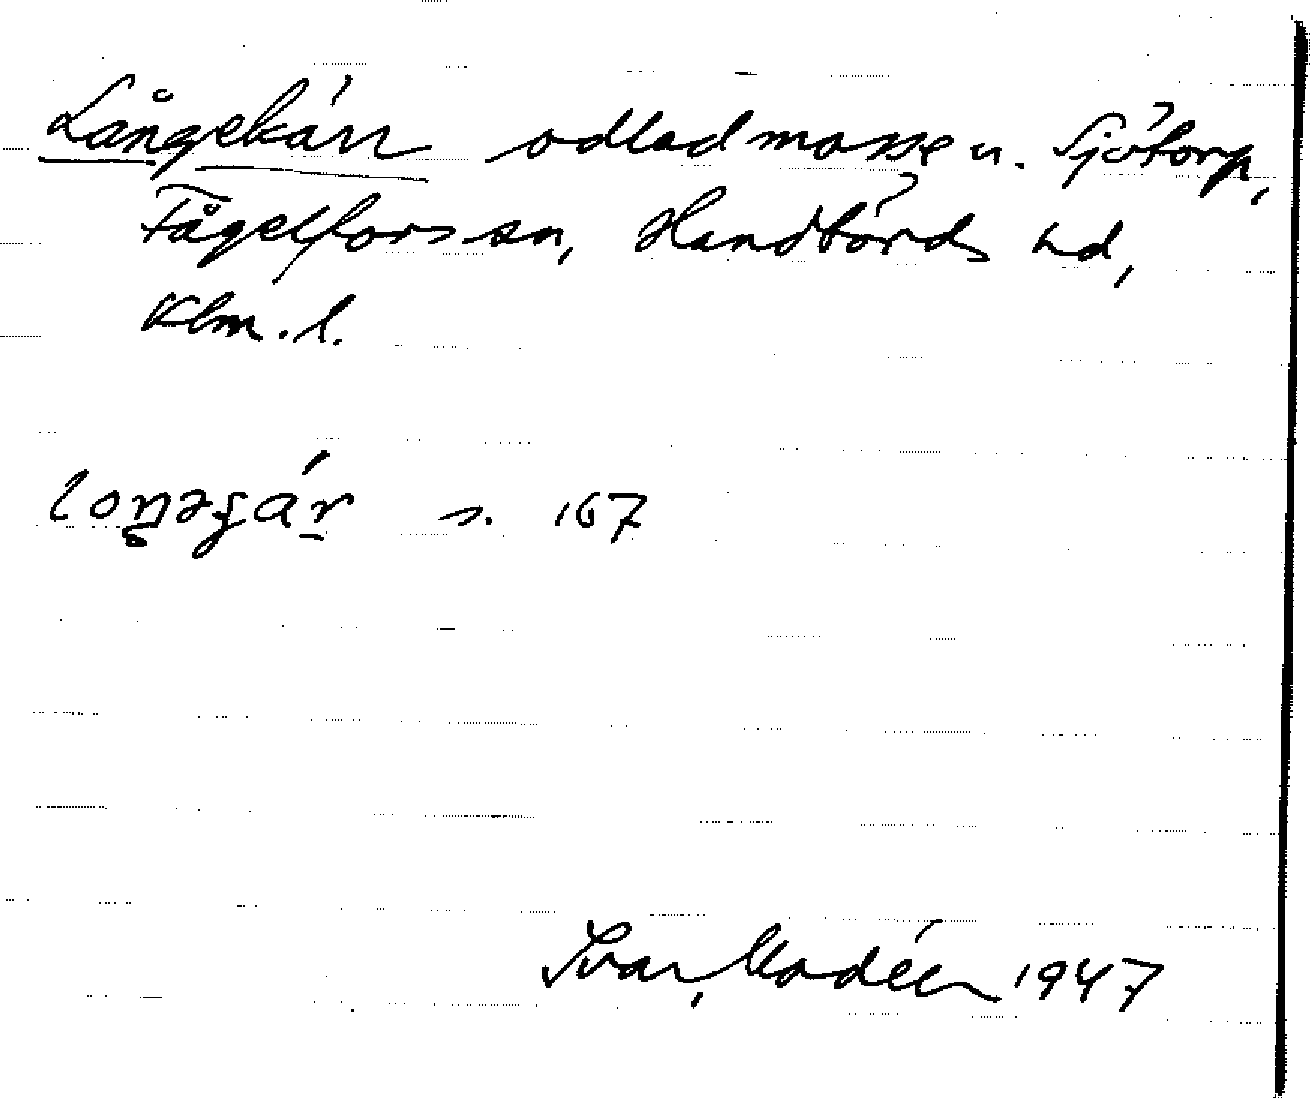 Långekärr odlad mosse u. Sjötorp,
Fågelfors sn, Handbörds hd,
Klm. l.
loŋəʂár s. 167
Ivar Modéer 1947